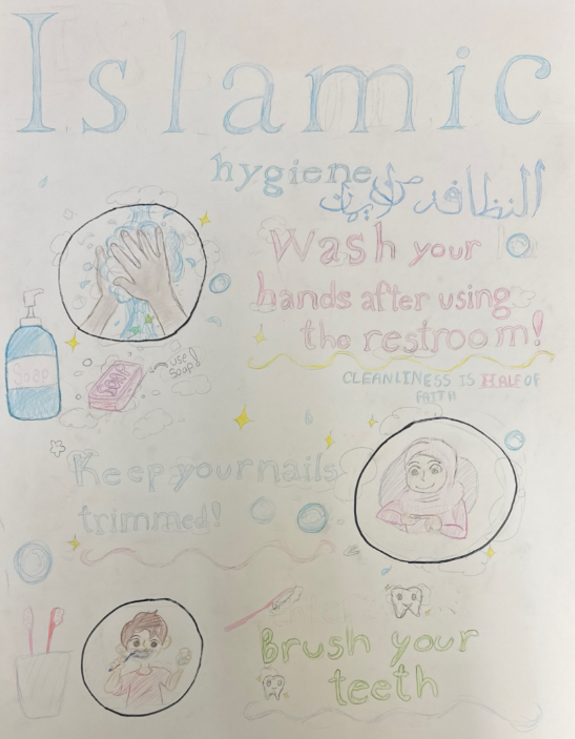 Islamic
hygiene
النظافة من الإيمان
Wash your
hands after using
the restroom!
Soap
use
soap!
CLEANLINESS IS HALF OF
FAITH
Keep your nails
trimmed!
Brush your
teeth